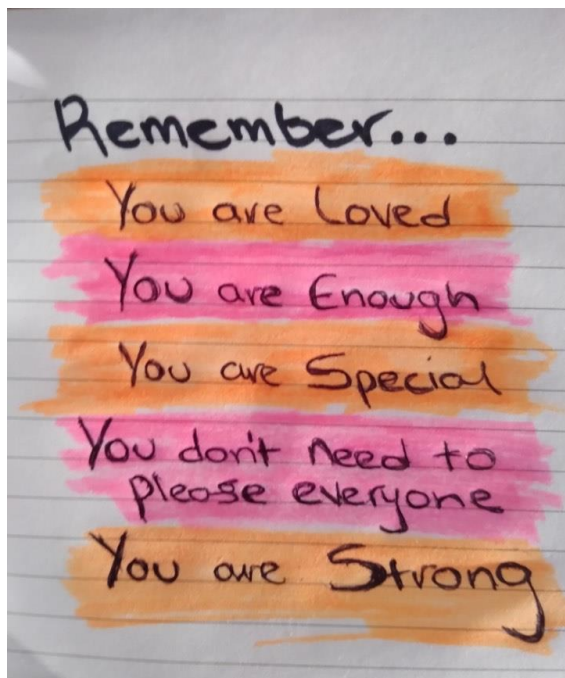 Remember...
You are Loved
You are Enough
You are Special
You don't need to
please everyone
You are Strong